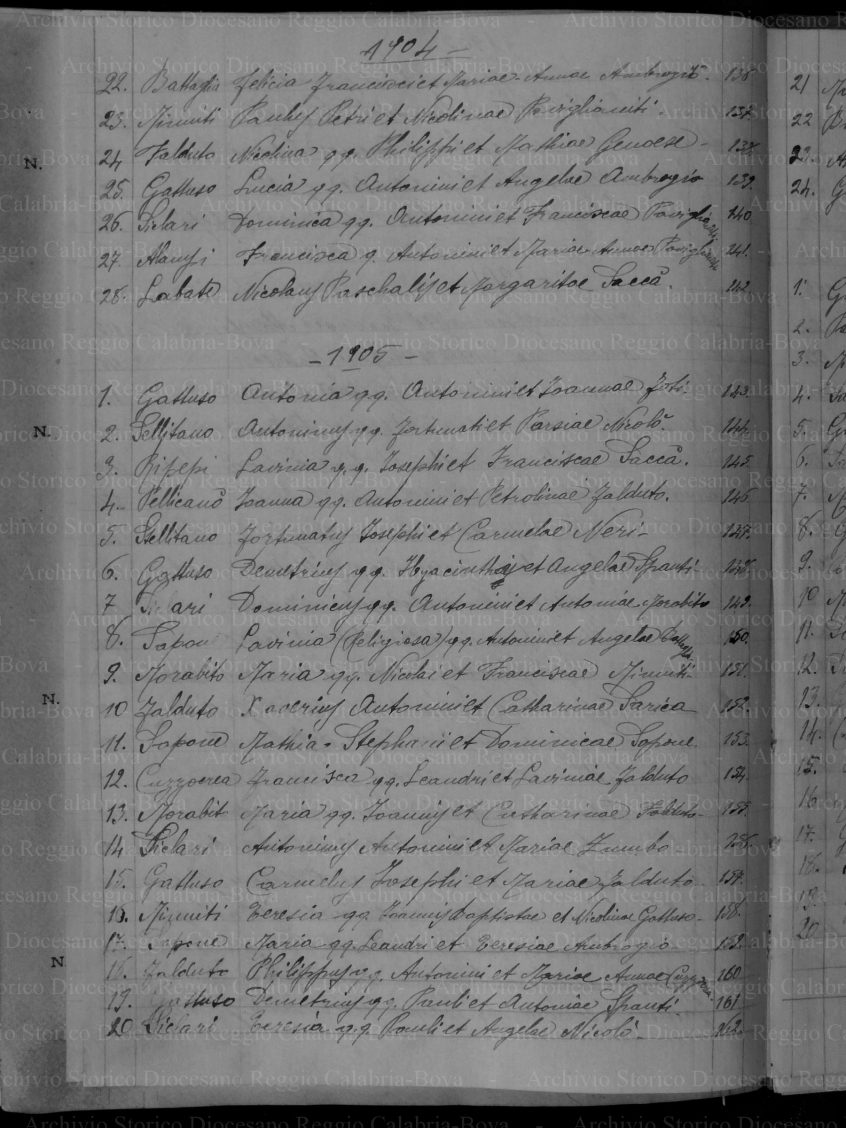 1904
22. Battaglia Felicia Francisci et Mariae Annae Ambrogio. 136
23. Minniti Paulus Petri et Nicolinae Poviglianiti. 137
N. 24 Falduto Nicolina qq. Philippi et Mathiae Genoese 138
25. Gattuso Lucia qq. Antonini et Angelae Ambrogio 139.
26. Siclari Dominica qq. Antonini et Franciscae 140
27. Francisca q. Antonini et Mariae Annae 141.
28. Labate Nicolaus Paschalis et Margaritae Saccà. 142
- 1905 -
1. Gattuso Antonia qq. Antonini et Joannae Foti. 143.
N. 2. Stellitano Antoninus qq. Fortunati et Persiae Nicolò. 144.
3. Lavinia q.q. Josephi et Franciscae Saccà. 145
4. Pellicanò Joanna qq. Antonini et Petrolinae Falduto. 146
5. Stellitano Fortunatus Josephi et Carmelae Neri 147.
6. Gattuso Demetrius qq. et Angelae Spanti 148.
7 Siclari Dominicus qq. Antonini et Antoniae Morabito 149.
8. Sapone Lavinia (Religiosa) qq. Antonini et Angelae 150.
9. Morabito Maria qq. Nicolai et Franciscae Minniti. 151.
N. 10 Falduto Xaverius Antonini et Catharinae Sarica 152.
11. Sapone Mathia Stephani et Dominicae Sapone. 153.
12. Cuzzocrea Francisca qq. Leandri et Laviniae Falduto 154.
13. Morabit Maria qq. Joannis et Catharinae Falduto 155.
14 Siclari Antoninus Antonini et Mariae Zumbo 156.
15. Gattuso Carmelus Josephi et Mariae Falduto 157.
16. Minniti Teresia qq Joannis Baptistae et Nicolinae Gattuso. 158.
17. Sapone Maria qq. Leandri et Teresiae Ambrogio 159.
N 18. Falduto Philippus q.q. Antonini et Mariae Annae 160
19. Gattuso Demetrius qq. Pauli et Antoniae Spanti. 161
20 Siclari Teresia q.q. Pauli et Angelae Nicolò. 162.
21
22
23.
24.
1.
2.
3.
4.
5.
6.
7.
8.
9.
10
11.
12.
13.
14.
15.
16
17.
18.
19.
20
Archivio Storico Diocesano Reggio Calabria-Bova